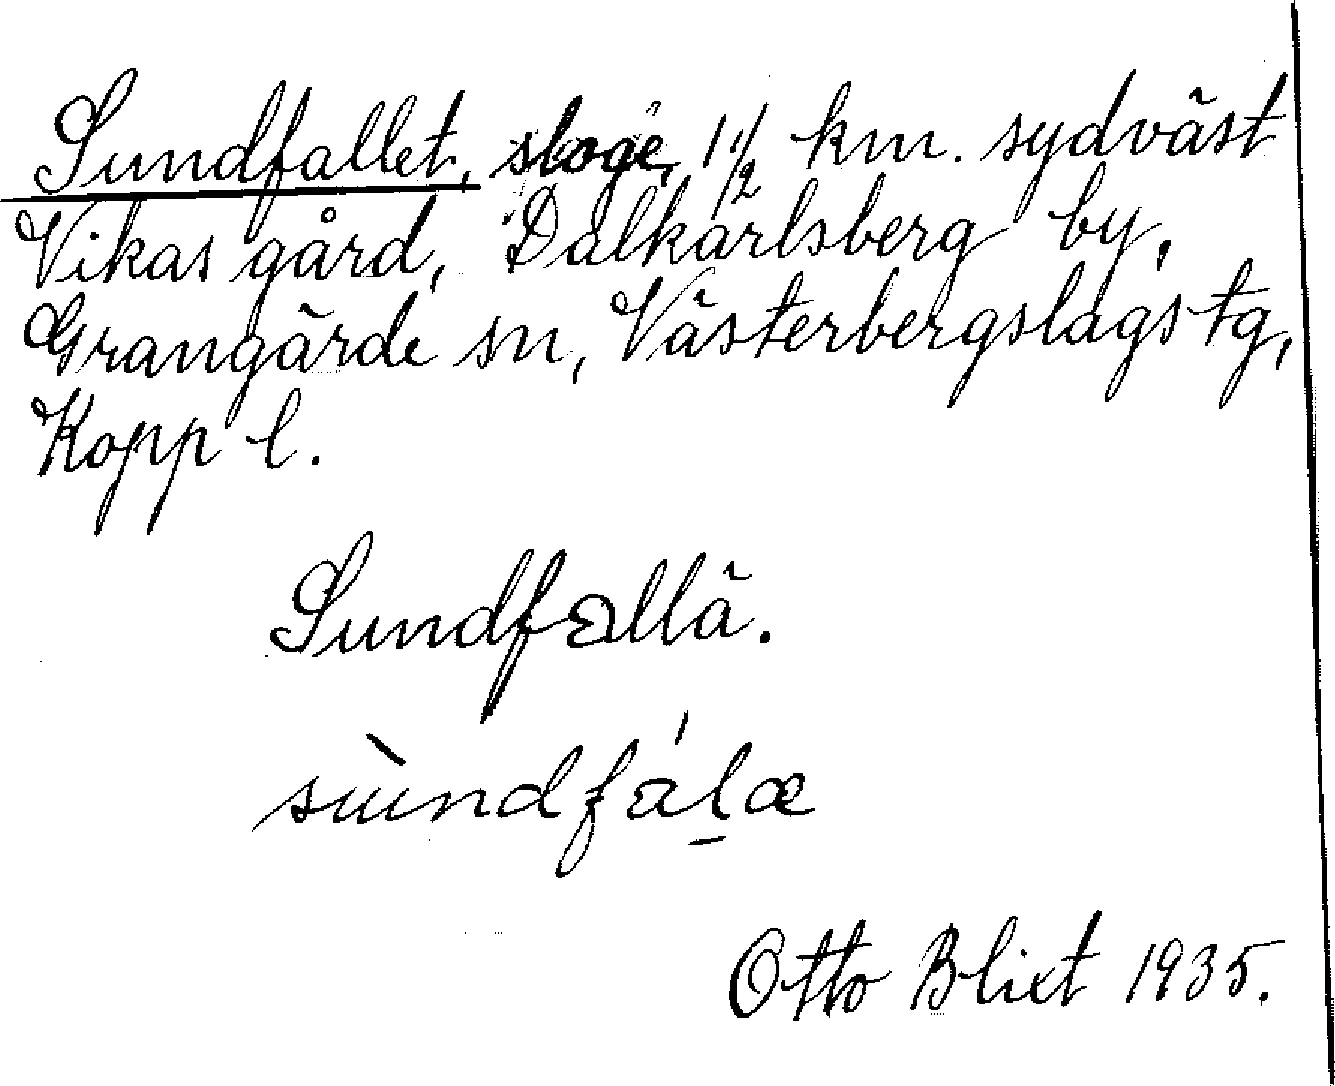 Sundfallet, skoge, 1 1/2 km. sydväst
Vikas gård, Dalkarlsberg by,
Grangärde sn, Västerbergslags tg,
Kopp l.
Sundfallä.
sùndfálæ
Otto Blixt 1935.